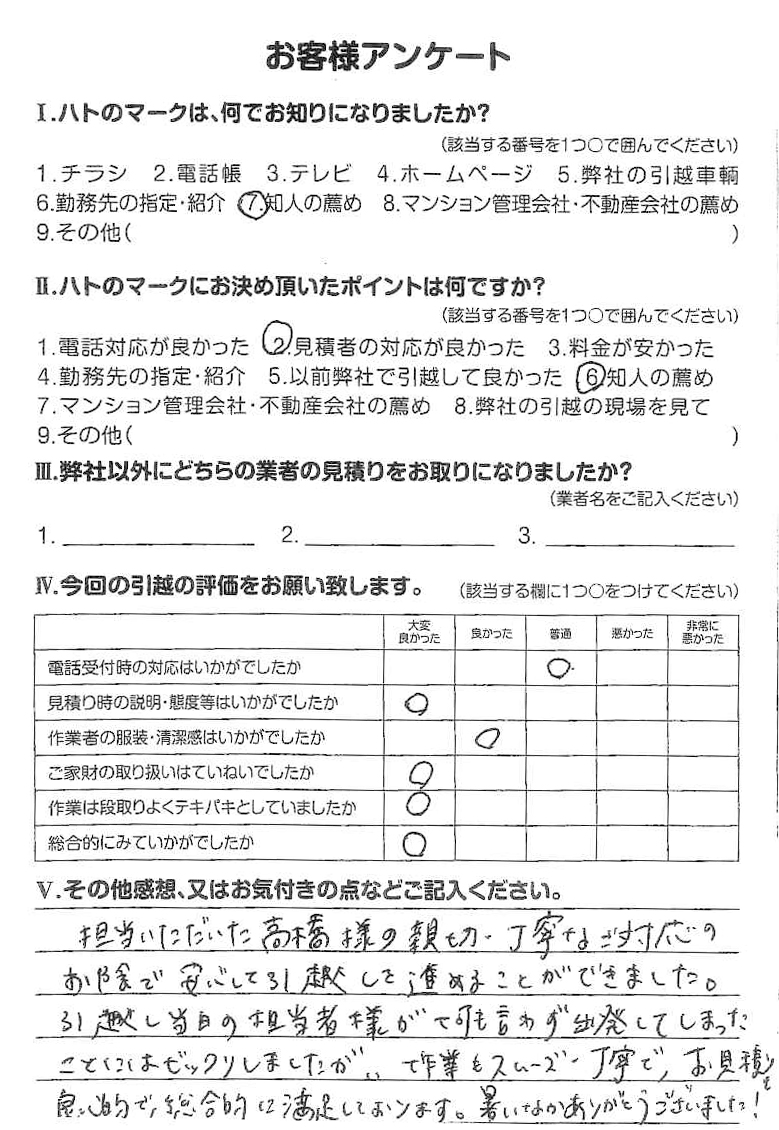 お客様アンケート
Ⅰ.ハトのマークは、何でお知りになりましたか?
(該当する番号を1つ○で囲んでください)
1.チラシ 2.電話帳 3.テレビ 4.ホームページ 5.弊社の引越車輌
6.勤務先の指定・紹介 7.知人の薦め 8.マンション管理会社・不動産会社の薦め
9.その他( )
Ⅱ.ハトのマークにお決め頂いたポイントは何ですか?
(該当する番号を1つ○で囲んでください)
1.電話対応が良かった 2.見積者の対応が良かった 3.料金が安かった
4.勤務先の指定・紹介 5.以前弊社で引越して良かった 6.知人の薦め
7.マンション管理会社・不動産会社の薦め 8.弊社の引越の現場を見て
9.その他( )
Ⅲ.弊社以外にどちらの業者の見積りをお取りになりましたか?
(業者名をご記入ください)
1. 2. 3.
Ⅳ.今回の引越の評価をお願い致します。 (該当する欄に1つ○をつけてください)
大変良かった 良かった 普通 悪かった 非常に悪かった
電話受付時の対応はいかがでしたか ○
見積り時の説明・態度等はいかがでしたか ○
作業者の服装・清潔感はいかがでしたか ○
ご家財の取り扱いはていねいでしたか ○
作業は段取りよくテキパキとしていましたか ○
総合的にみていかがでしたか ○
Ⅴ.その他感想、又はお気付きの点などご記入ください。
担当いただいた高橋様の親切・丁寧なご対応の
お陰で安心して引越しを進めることができました。
引越し当日の担当者様が何も言わず出発してしまった
ことにはビックリしましたが、作業もスムーズ・丁寧で、お見積りも
良心的で、総合的に満足しております。暑いなかありがとうございました!